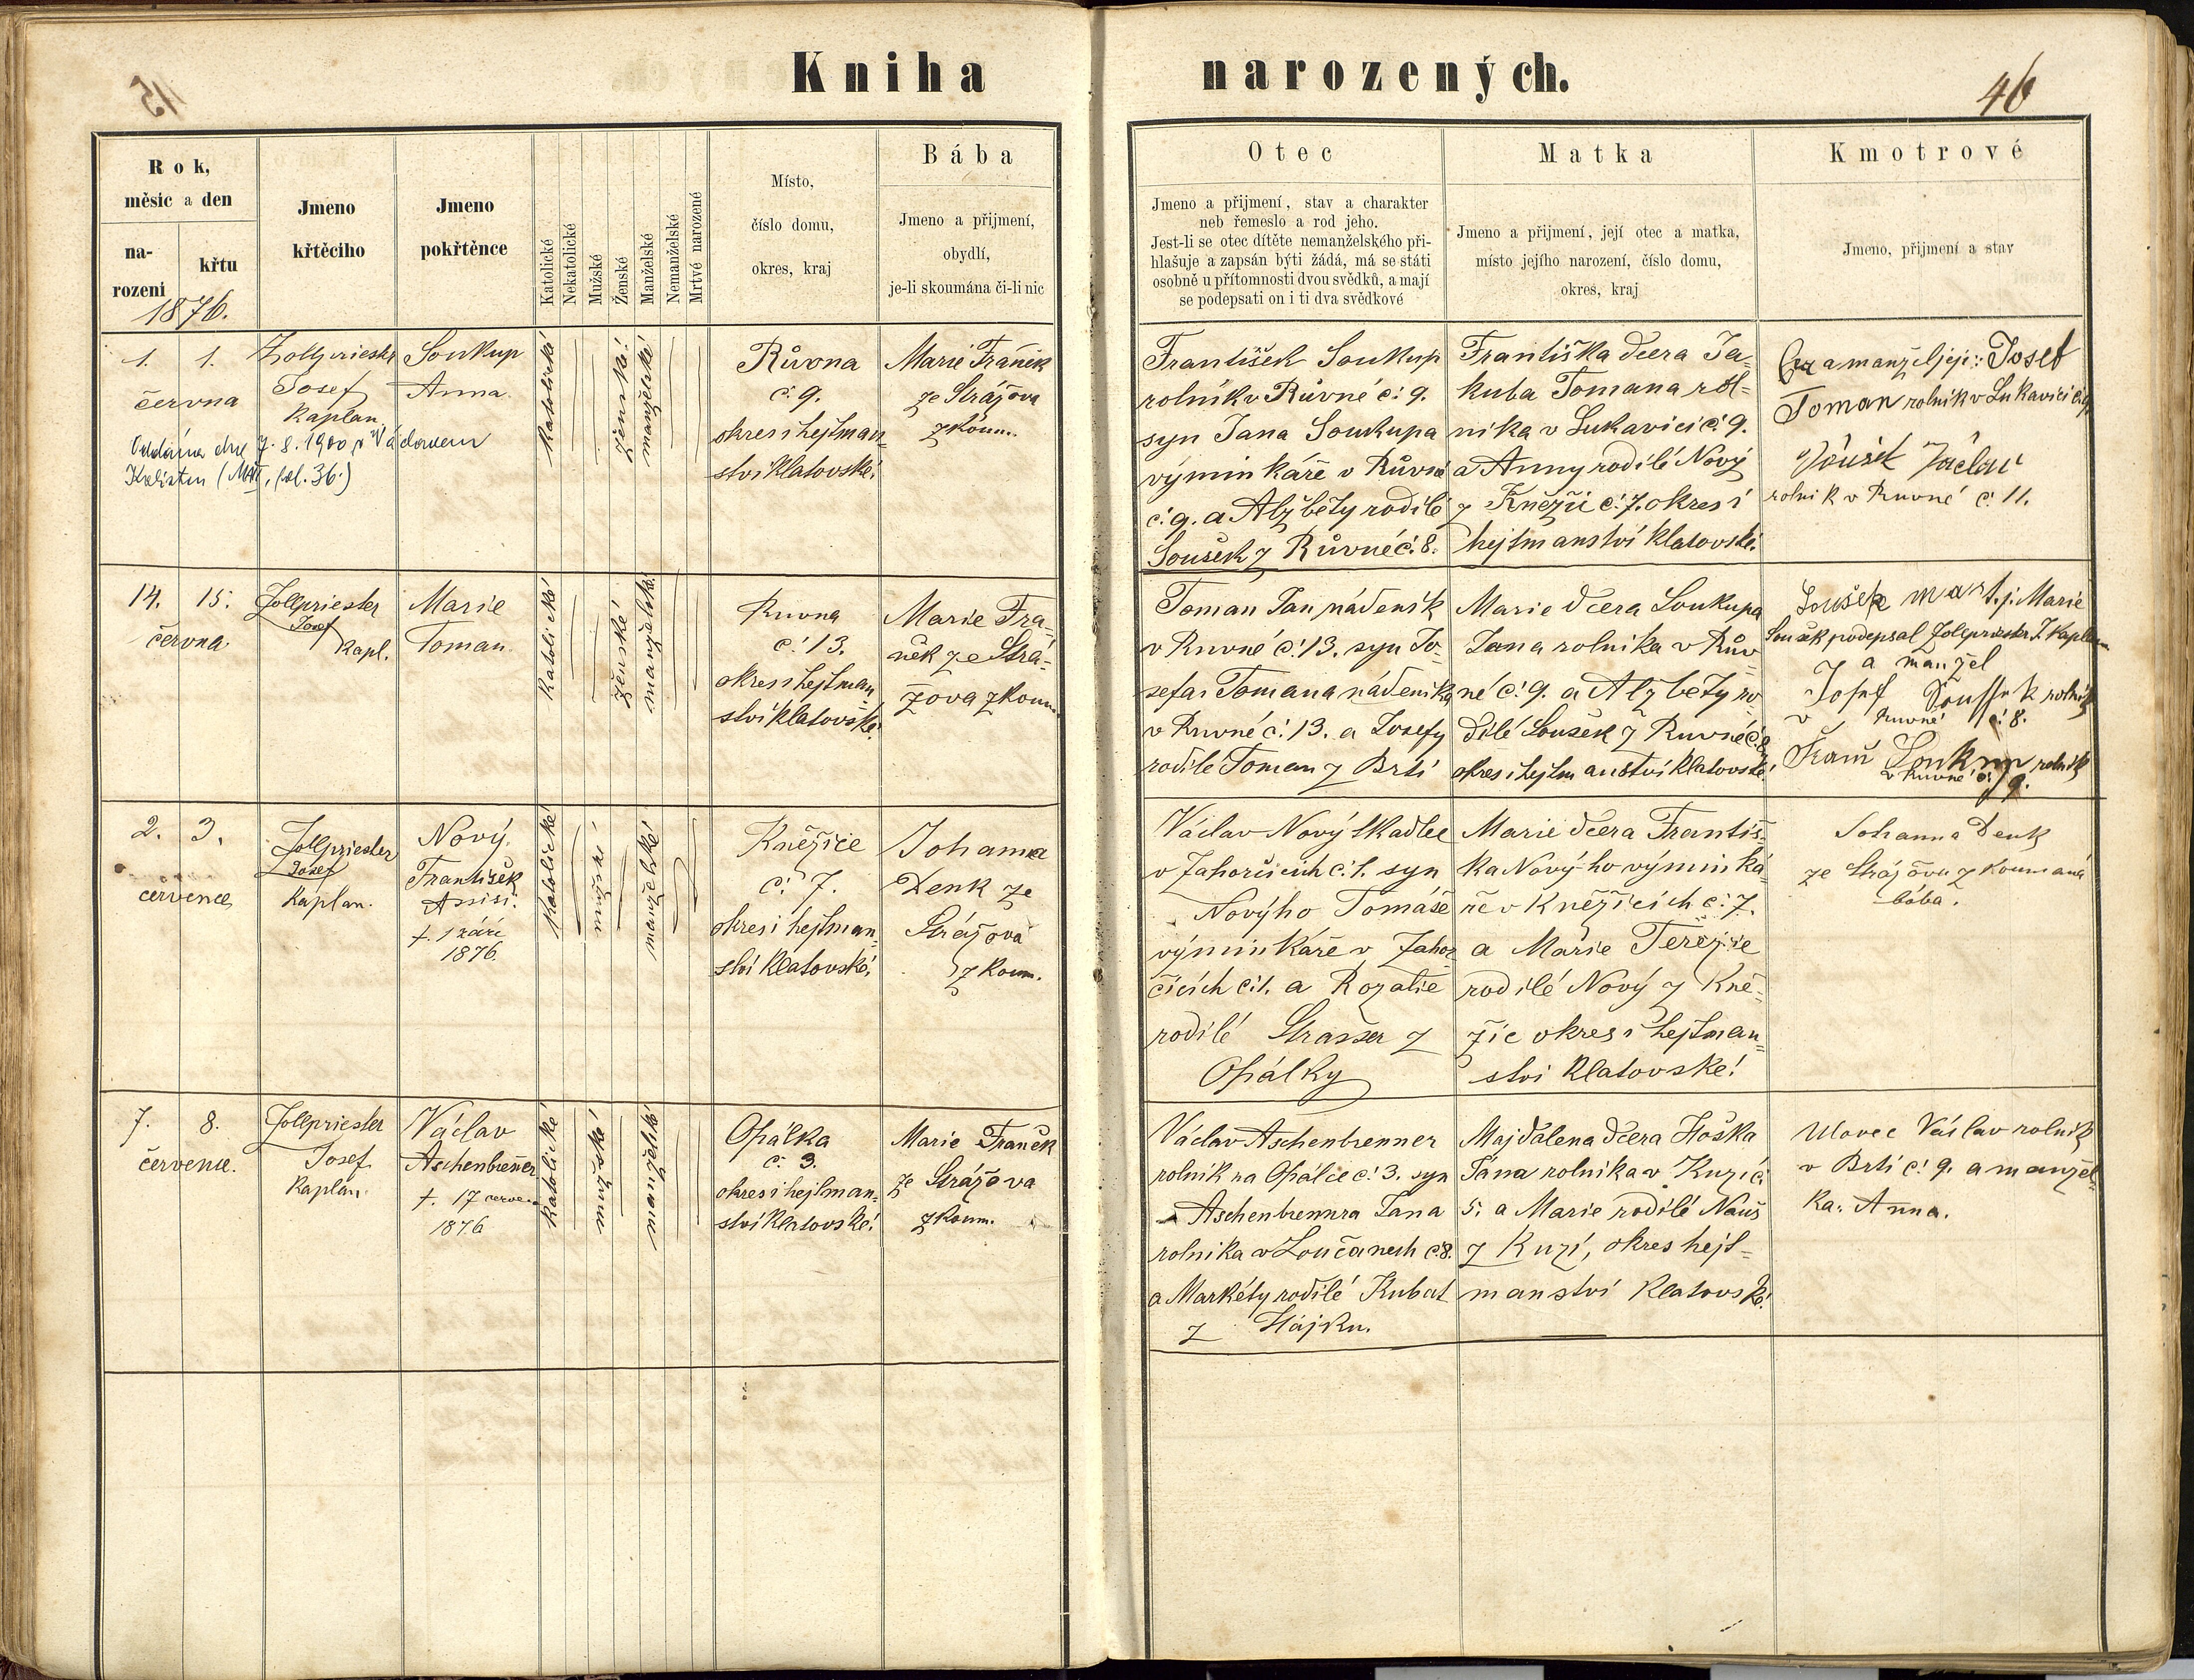 Kniha narozených.
46
Rok,
měsíc a den
na-
rozeni
křtu
1876.
Jmeno
křtěcího
Jmeno
pokřtěnce
Katolické
Nekatolické
Mužské
Ženské
Manželské
Nemanželské
Mrtvé narozené
Místo,
číslo domu,
okres, kraj
Bába
Jmeno a přijmení,
obydlí,
je-li skoumána či-li nic
Otec
Jmeno a přijmení, stav a charakter
neb řemeslo a rod jeho.
Jest-li se otec dítěte nemanželského při-
hlašuje a zapsán býti žádá, má se státi
osobně u přítomnosti dvou svědků, a mají
se podepsati on i ti dva svědkové
Matka
Jmeno a přijmení, její otec a matka,
místo jejího narození, číslo domu,
okres, kraj
Kmotrové
Jmeno, přijmení a stav
1. 1.
června
Zollpriester
Josef
Kaplan
Soukup
Anna
Oddána dne 7. 8. 1900 s Václavem
(fol. 36.)
katolické
ženské
manželské
Růvna
č. 9.
okres i hejtman-
ství klatovské.
Marie Franěk
ze Strážova
zkoum.
František Soukup
rolník v Růvné č. 9.
syn Jana Soukupa
výminkáře v Růvné
č. 9. a Alžběty rodilé
Soušek z Růvné č. 8.
Františka dcera Ja-
kuba Tomana rol-
níka v Lukavici č. 9.
a Anny rodilé Nový
z Kněžic č. 7. okres i
hejtmanství klatovské.
a manžel její: Josef
Toman rolník v Lukavici č. 9.
Václav
rolník v Ruvné č. 11.
14. 15.
června
Zollpriester
Josef
Kapl.
Marie
Toman.
katolické
ženské
manželské
Ruvna
č. 13.
okres i hejtman
ství klatovské.
Marie Fra-
něk ze Strá-
žova zkoum.
Toman Jan nádeník
v Ruvné č. 13. syn Jo-
sefa Tomana nádeníka
v Ruvné č. 13. a Josefy
rodilé Toman z Brtí
Marie dcera Soukupa
Jana rolníka v Rův-
né č. 9. a Alžběty ro-
dilé Soušek z Ruvné č. 8.
okres i hejtmanství klatovské.
t. j. Marie
Soušek podepsal Zollpriester J. Kaplan
a manžel
Josef rolník
v Ruvné č. 8.
Soukup rolník
v Ruvné č. 9.
2. 3.
července
Zollpriester
Josef
Kaplan.
Nový
František
Assisi.
†. 1 září
1876.
katolické
mužské
manželské
Kněžice
č. 7.
okres i hejtman-
ství klatovské.
Johanna
Denk ze
Strážova
zkoum.
Václav Nový tkadlec
v Zahorčicích č. 1. syn
Nového Tomáše
výminkáře v Zahor-
čicích č. 1. a Rozalie
rodilé Strasser z
Opálky
Marie dcera Františ-
ka Nový-ho výminká-
ře v Kněžicích č. 7.
a Marie Terezie
rodilé Nový z Kně-
žic okres i hejtman-
ství klatovské.
Johanna Denk
ze Strážova zkoumaná
bába.
7. 8.
července.
Zollpriester
Josef
Kaplan.
Václav
Aschenbrenner
†. 17 července
1876
katolické
mužské
manželské
Opálka
č. 3.
okres i hejtman-
ství klatovské.
Marie Franěk
ze Strážova
zkoum.
Václav Aschenbrenner
rolník na Opálce č. 3. syn
Aschenbrennra Jana
rolníka v Loučanech č. 8.
a Markéty rodilé Kubat
z Hájku.
Majdalena dcera Hoška
Jána rolníka v Kuzí č.
5. a Marie rodilé Nauš
z Kuzí, okres hejt-
manství klatovské.
Ulovec Václav rolník
v Brtí č. 9. a manžel-
ka: Anna.